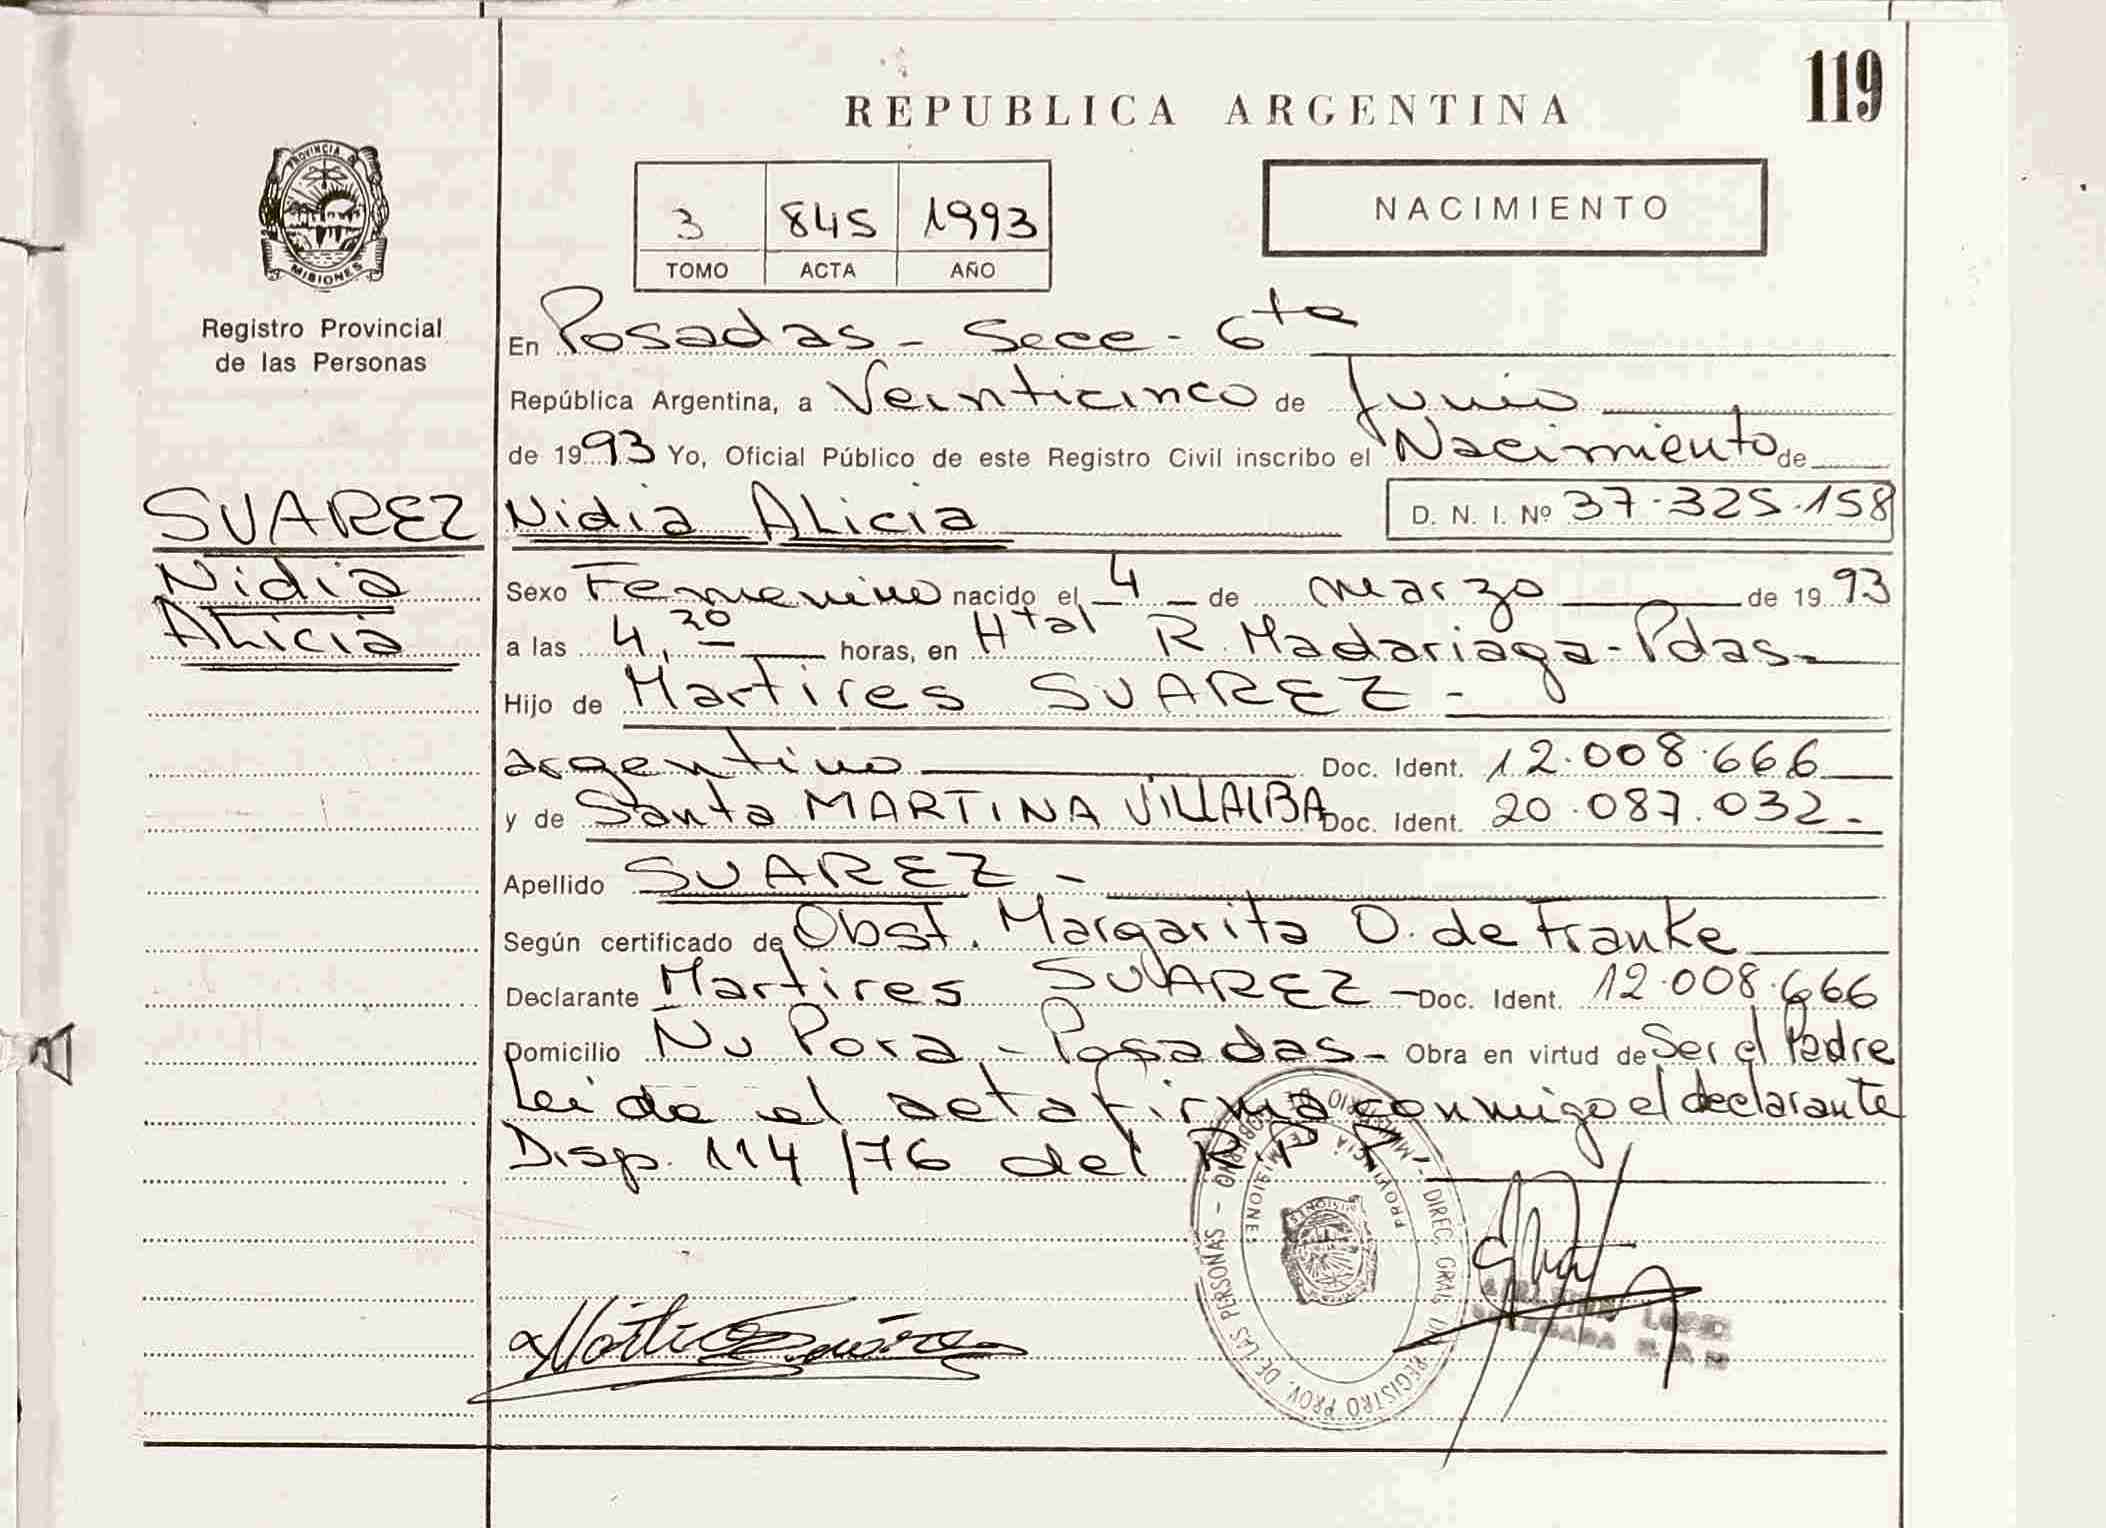 119
REPUBLICA ARGENTINA
PROVINCIA D
MISIONES
Registro Provincial
de las Personas
3 845 1993
TOMO ACTA AÑO
NACIMIENTO
En Posadas - Secc - 6ta
República Argentina, a Veinticinco de Junio
de 1993 Yo, Oficial Público de este Registro Civil inscribo el Nacimiento de
SUAREZ
Nidia
Alicia
Nidia Alicia D. N. I. Nº 37.325.158
Sexo Femenino nacido el 4 de marzo de 1993
a las 4,20 horas, en Htal R. Madariaga - Pdas -
Hijo de Martires SUAREZ -
argentino Doc. Ident. 12.008.666
y de Santa MARTINA VILLALBA Doc. Ident. 20.087.032 -
Apellido SUAREZ -
Según certificado de Obst. Margarita O. de Franke
Declarante Martires SUAREZ - Doc. Ident. 12.008.666
Domicilio Ñu Pora - Posadas - Obra en virtud de Ser el Padre
Leida el acta firma conmigo el declarante
Disp. 114/76 del R.P.P.
MISIONES
PROVINCIA DE MISIONES
DIREC. GRAL. DEL REGISTRO PROV. DE LAS PERSONAS -